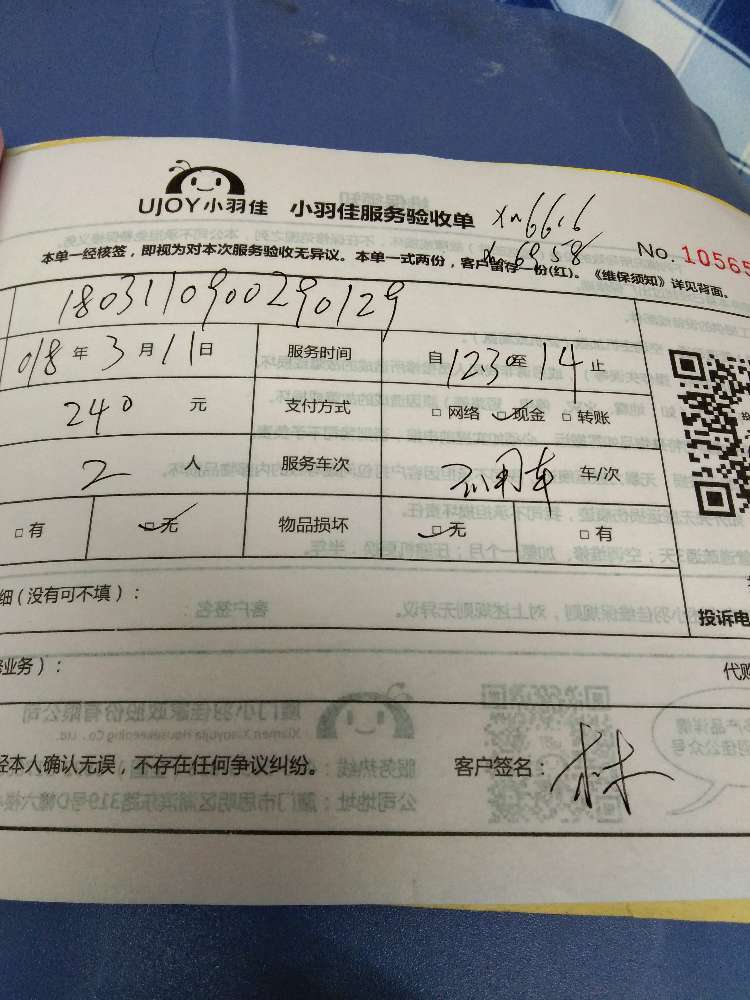 UJOY小羽佳 小羽佳服务验收单 xn6616
xn6958
No. 10565
本单一经核签，即视为对本次服务验收无异议。本单一式两份，客户留存一份(红)。《维保须知》详见背面。
1803110900290129
018年3月11日 服务时间 自12:30至14止
240元 支付方式 □网络 □现金 □转账
2人 服务车次 车/次
□有 □无 物品损坏 □无 □有
细（没有可不填）：
投诉电
业务）： 代购
经本人确认无误，不存在任何争议纠纷。 客户签名：林